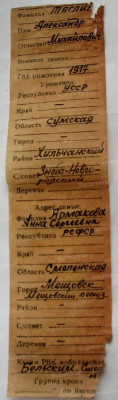 Фамилия Тягний
Имя Александр
Отчество Михайлович
Воинское звание —
Год рождения 1917
Уроженец
Республика УССР
Край —
Область Сумская
Город —
Район Хильчанский
С/совет Зноба-Нови-
Деревня
Адрес семьи
Фамилия Ярмакова
Анна Сергеевна
Республика РСФСР
Край —
Область Смоленская
Город Мещовск
Мещовский поход
Район —
С/совет —
Деревня —
Каким РВК мобилизован
Бельским, Смол
Группа крови
по Янскому